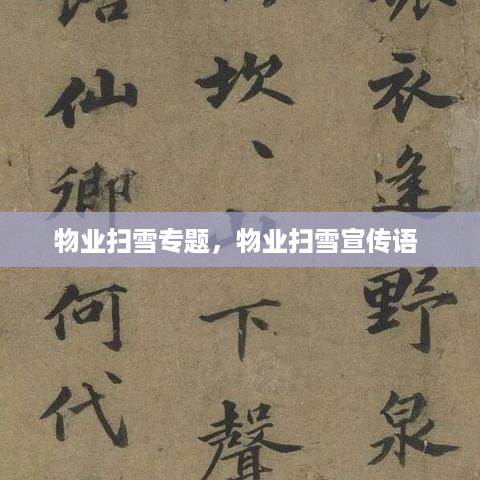 物业扫雪专题，物业扫雪宣传语
衣逢野泉
坎、下聲
仙卿何代